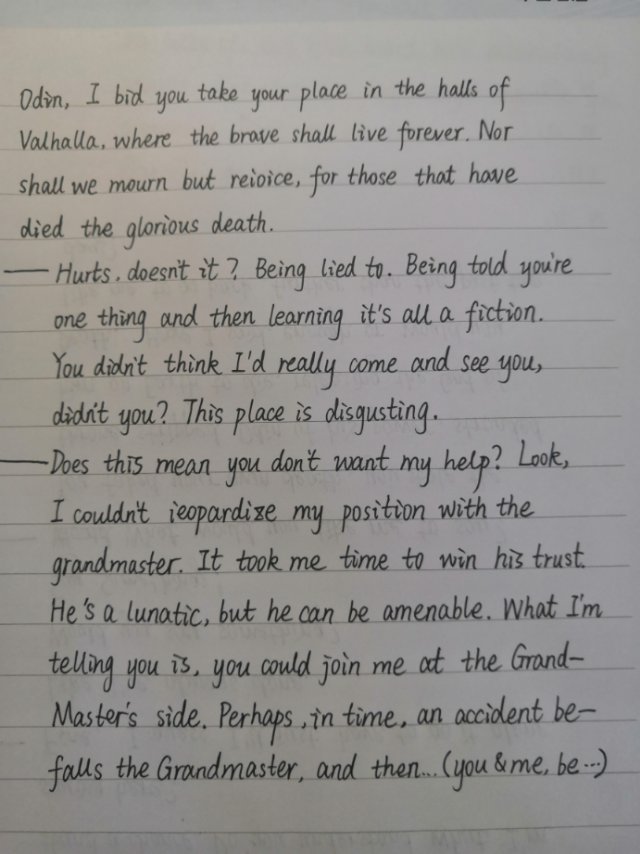 Odin, I bid you take your place in the halls of
Valhalla, where the brave shall live forever. Nor
shall we mourn but reioice, for those that have
died the glorious death.
— Hurts. doesn't it? Being lied to. Being told you're
one thing and then learning it's all a fiction.
You didn't think I'd really come and see you,
didn't you? This place is disgusting.
— Does this mean you don't want my help? Look,
I couldn't ieopardize my position with the
grandmaster. It took me time to win his trust.
He's a lunatic, but he can be amenable. What I'm
telling you is, you could join me at the Grand-
Master's side. Perhaps, in time, an accident be-
falls the Grandmaster, and then... (you & me, be...)